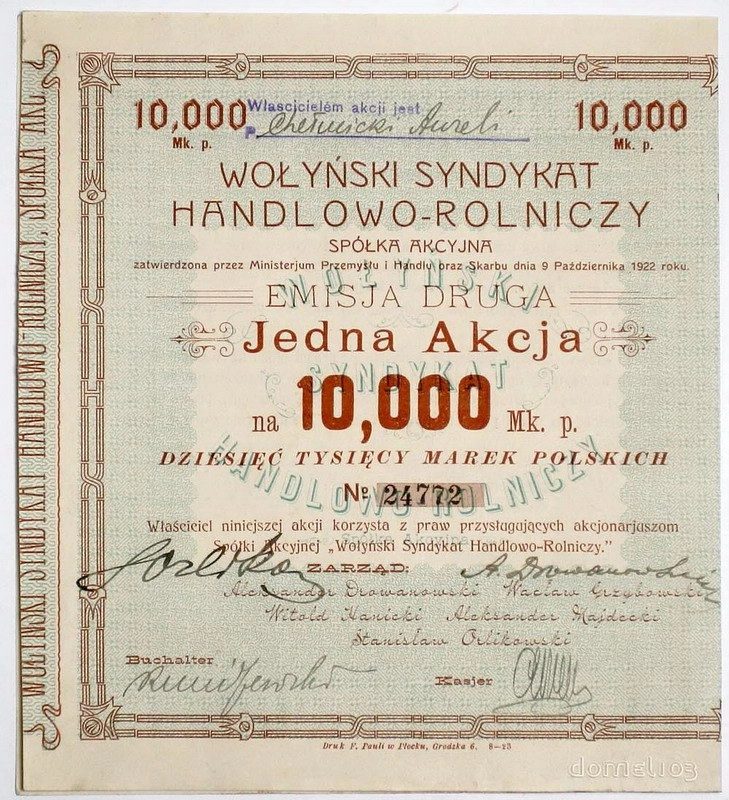 WOŁYŃSKI SYNDYKAT HANDLOWO-ROLNICZY, SPÓŁKA AKC
10,000 Mk. p.
Właścicielem akcji jest
P. Chełmicki Aureli
10,000 Mk. p.
WOŁYŃSKI SYNDYKAT
HANDLOWO-ROLNICZY
SPÓŁKA AKCYJNA
zatwierdzona przez Ministerjum Przemysłu i Handlu oraz Skarbu dnia 9 Października 1922 roku.
WOŁYŃSKI
EMISJA DRUGA
Jedna Akcja
SYNDYKAT
na 10,000 Mk. p.
DZIESIĘĆ TYSIĘCY MAREK POLSKICH
HANDLOWO ROLNICZY
№ 24772
Właściciel niniejszej akcji korzysta z praw przysługujących akcjonarjuszom
Spółki Akcyjnej „Wołyński Syndykat Handlowo-Rolniczy.”
Spółka Akcyjna
ZARZĄD:
Aleksander Drowanowski Wacław Grzybowski
Witold Hanicki Aleksander Majdecki
Stanisław Orlikowski
Buchalter
Kasjer
Druk F. Pauli w Płocku, Grodzka 6. 8-23
domel103